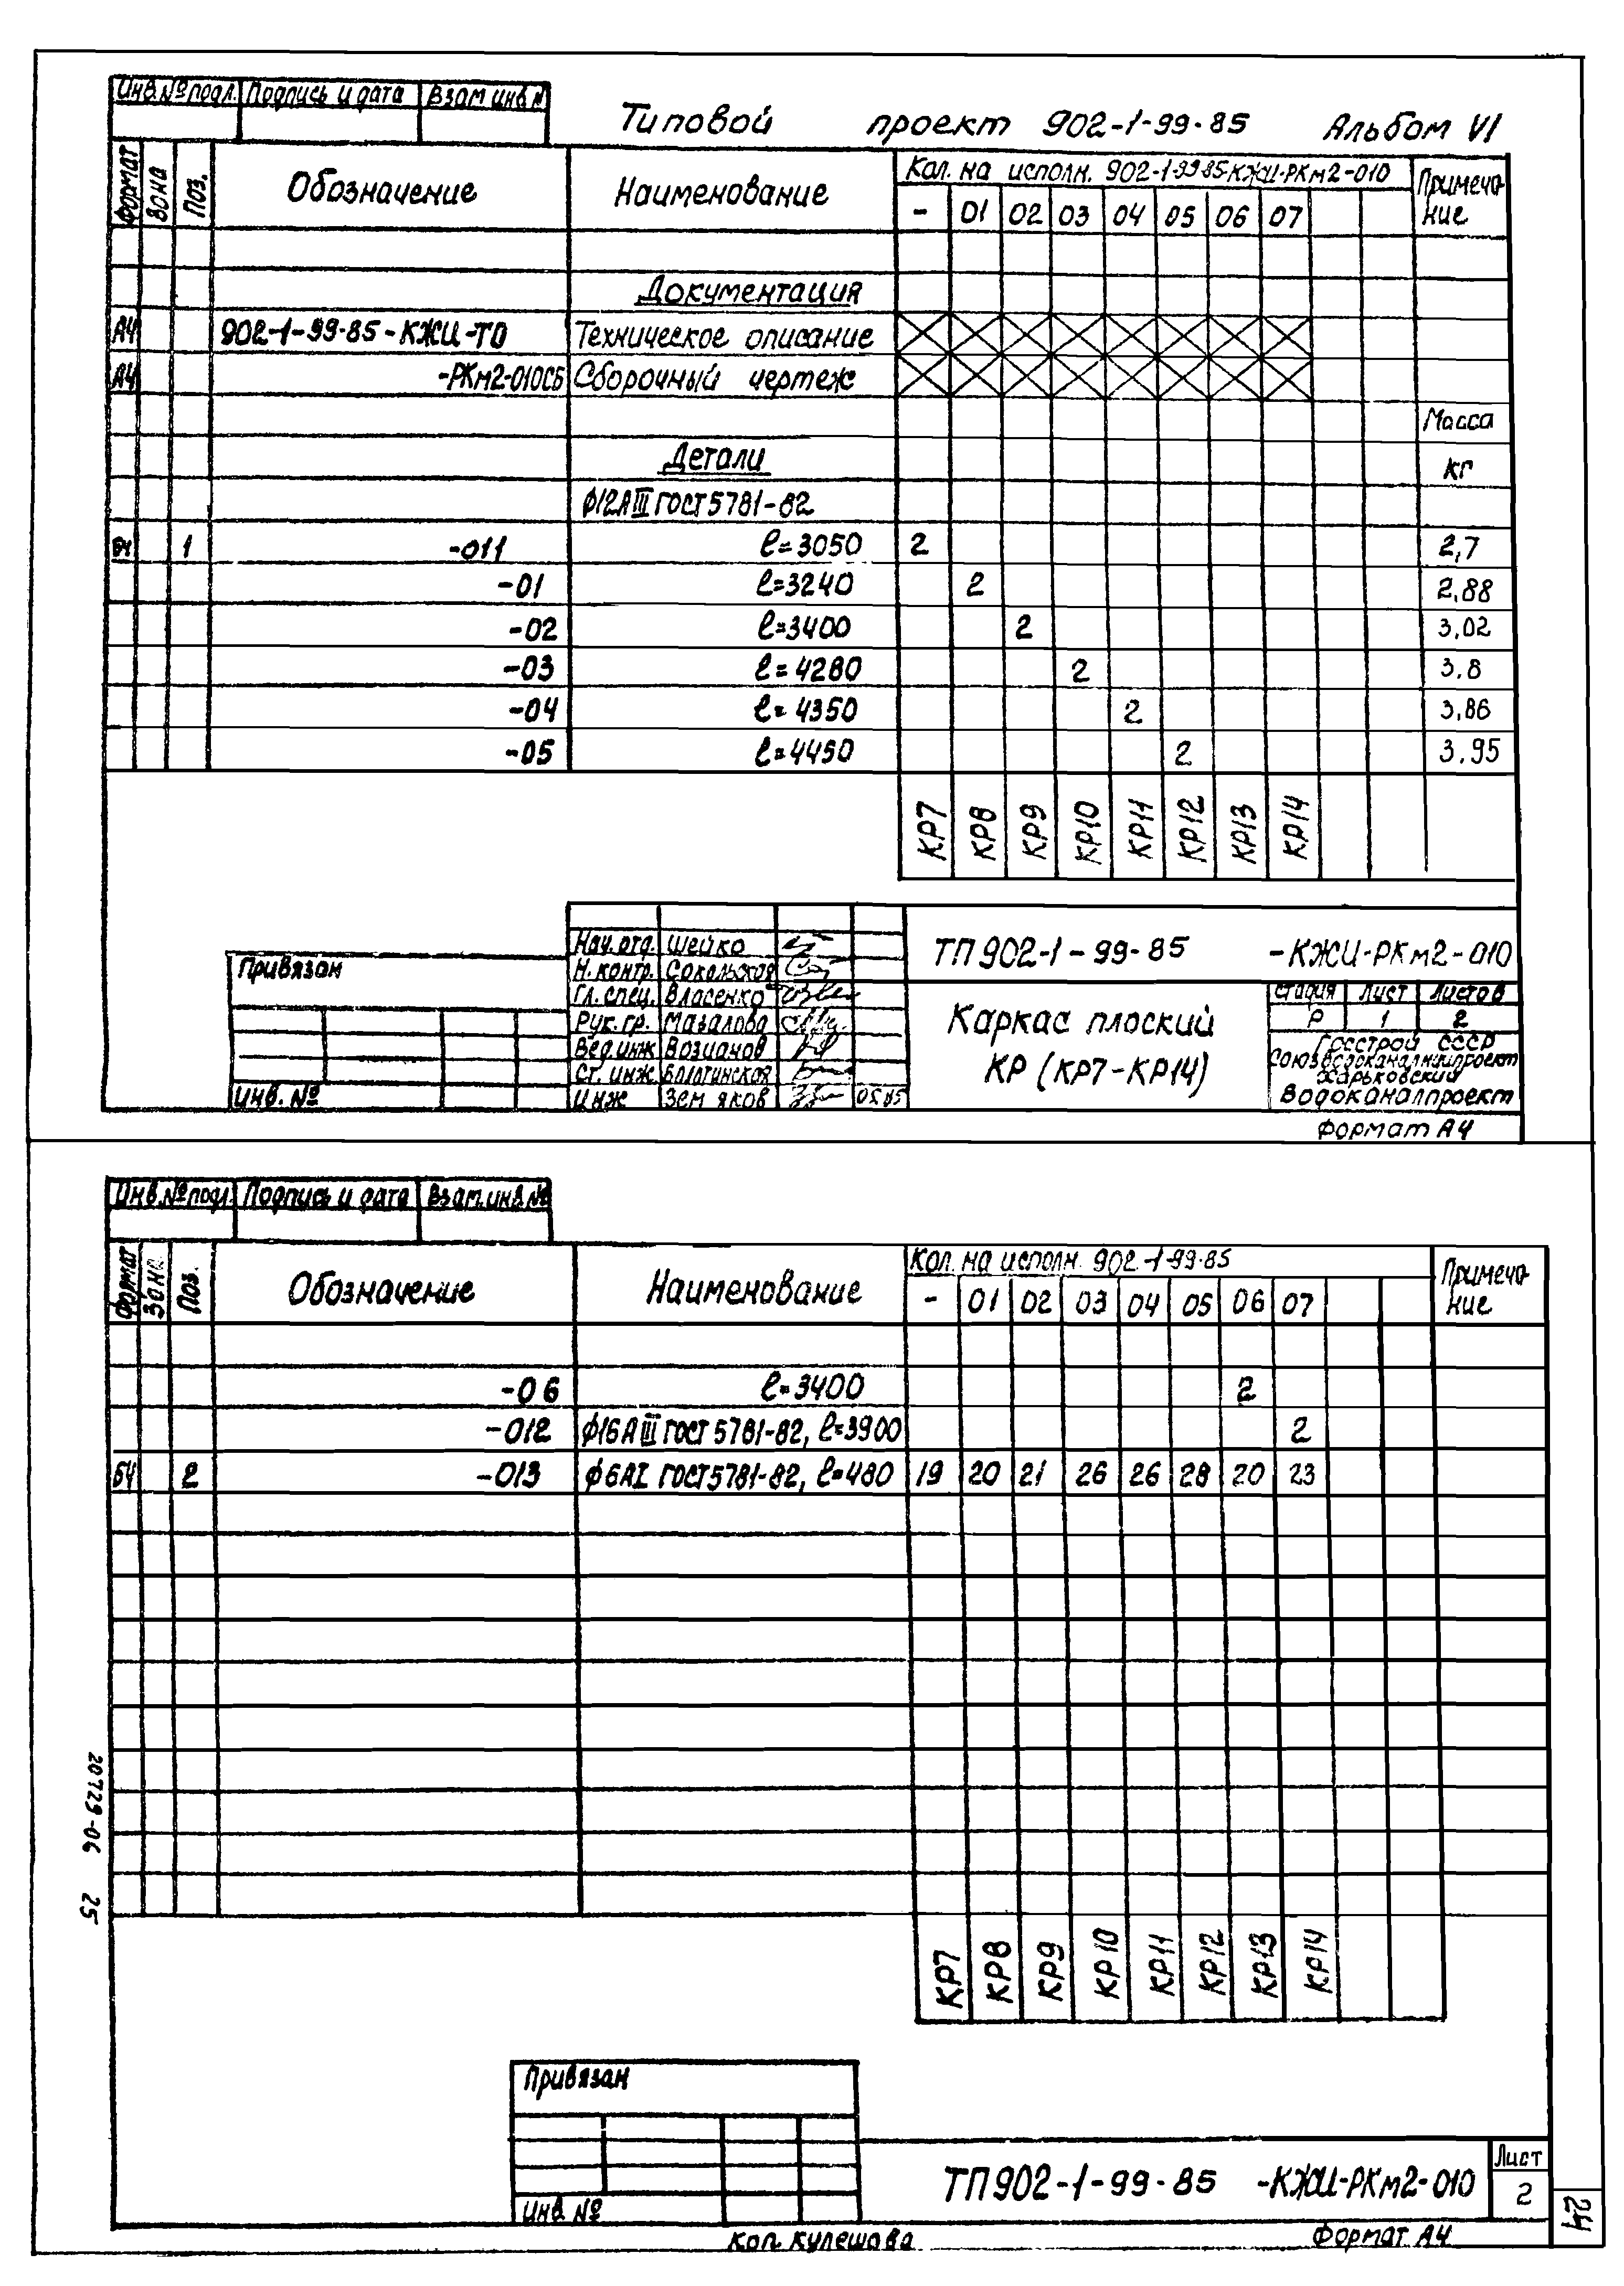 Инв.№подл. Подпись и дата Взам инв №
Типовой проект 902-1-99-85 Альбом VI
Формат Зона Поз. Обозначение Наименование Кол. на исполн. 902-1-99-85-КЖИ-РКм2-010 Примеча-
- 01 02 03 04 05 06 07 ние
Документация
А4 902-1-99-85-КЖИ-ТО Техническое описание
А4 -РКм2-010СБ Сборочный чертеж
Масса
Детали кг
ф12АIII ГОСТ5781-82
БЧ 1 -011 ℓ=3050 2 2,7
-01 ℓ=3240 2 2,88
-02 ℓ=3400 2 3,02
-03 ℓ=4280 2 3,8
-04 ℓ=4350 2 3,86
-05 ℓ=4450 2 3,95
КР7 КР8 КР9 КР10 КР11 КР12 КР13 КР14
Привязан
Инв. №
Нач. отд. Шейко
Н. контр. Сокольская
Гл. спец. Власенко
Рук. гр. Мазалова
Вед.инж Возианов
Ст. инж. Болотинская
Инж Земляков 05.85
ТП 902-1-99-85 -КЖИ-РКм2-010
Каркас плоский
КР (КР7-КР14)
Стадия Лист Листов
Р 1 2
Госстрой СССР
Союзводоканалниипроект
Харьковский
Водоканалпроект
Формат А4
Инв.№подл. Подпись и дата Взам.инв.№
Формат Зона Поз. Обозначение Наименование Кол. на исполн. 902-1-99-85 Примеча-
- 01 02 03 04 05 06 07 ние
-06 ℓ=3400 2
-012 ф16АIII ГОСТ 5781-82, ℓ=3900 2
БЧ 2 -013 ф6АI ГОСТ5781-82, ℓ=480 19 20 21 26 26 28 20 23
КР7 КР8 КР9 КР10 КР11 КР12 КР13 КР14
20729-06 25
Привязан
Инв №
ТП 902-1-99-85 -КЖИ-РКм2-010
Лист
2
24
Коп. Кулешова Формат А4